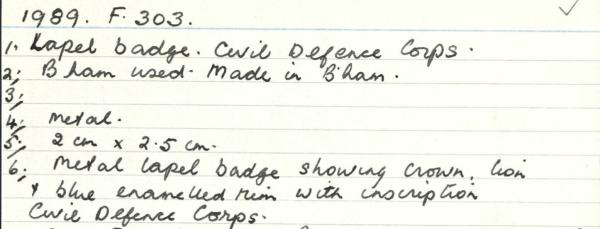 1989. F. 303.
1. Lapel badge. Civil Defence Corps.
2. B'ham used. Made in B'ham.
3.
4. Metal.
5. 2 cm x 2.5 cm.
6. Metal lapel badge showing crown, lion
+ blue enamelled rim with inscription
Civil Defence Corps.